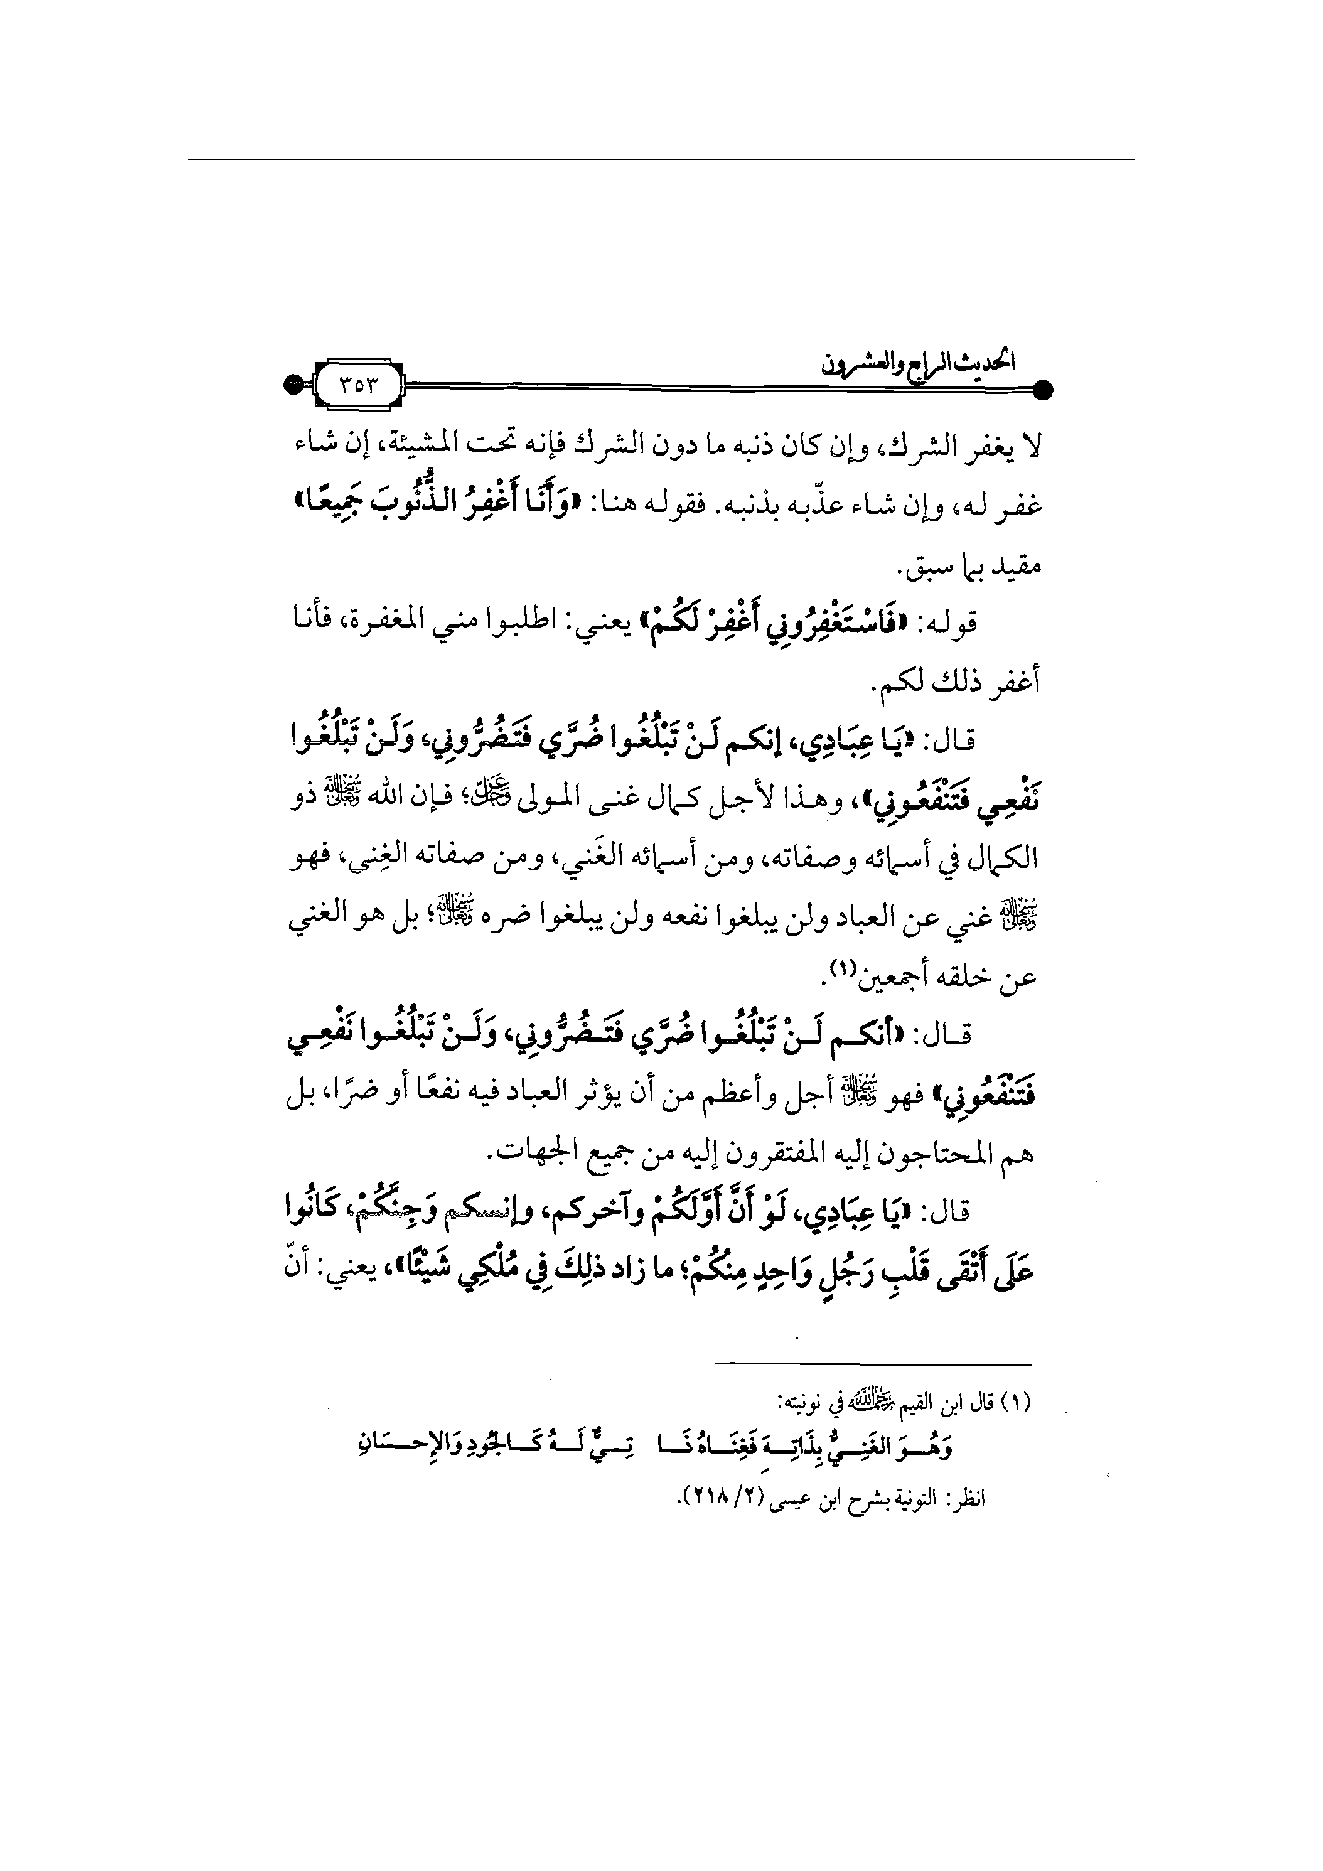 الحديث الرابع والعشرون
٣٥٣
لا يغفر الشرك، وإن كان ذنبه ما دون الشرك فإنه تحت المشيئة، إن شاء
غفر له، وإن شاء عذّبه بذنبه. فقوله هنا: «وَأَنَا أَغْفِرُ الذُّنُوبَ جَمِيعًا»
مقيد بما سبق.
قوله: «فَاسْتَغْفِرُونِي أَغْفِرْ لَكُمْ» يعني: اطلبوا مني المغفرة، فأنا
أغفر ذلك لكم.
قال: «يَا عِبَادِي، إنكم لَنْ تَبْلُغُوا ضُرَّي فَتَضُرُّونِي، وَلَنْ تَبْلُغُوا
نَفْعِي فَتَنْفَعُونِي»، وهذا لأجل كمال غنى المولى ﷿؛ فإن الله ﷾ ذو
الكمال في أسمائه وصفاته، ومن أسمائه الغَني، ومن صفاته الغِنى، فهو
﷾ غني عن العباد ولن يبلغوا نفعه ولن يبلغوا ضره ﷾؛ بل هو الغني
عن خلقه أجمعين(١).
قال: «أنكم لَنْ تَبْلُغُوا ضُرَّي فَتَضُرُّونِي، وَلَنْ تَبْلُغُوا نَفْعِي
فَتَنْفَعُونِي» فهو ﷾ أجل وأعظم من أن يؤثر العباد فيه نفعًا أو ضرًا، بل
هم المحتاجون إليه المفتقرون إليه من جميع الجهات.
قال: «يَا عِبَادِي، لَوْ أَنَّ أَوَّلَكُمْ وآخركم، وإنسكم وَجِنَّكُمْ، كَانُوا
عَلَى أَتْقَى قَلْبِ رَجُلٍ وَاحِدٍ مِنكُمْ؛ ما زاد ذلِكَ فِي مُلْكِي شَيْئًا»، يعني: أنّ
(١) قال ابن القيم ﵀ في نونيته:
وَهُوَ الغَنِيُّ بِذَاتِهِ فَغِنَاهُ ذَا تِيٌّ لَهُ كَالجُودِ وَالإِحسَانِ
انظر: النونية بشرح ابن عيسى (٢/ ٢١٨).